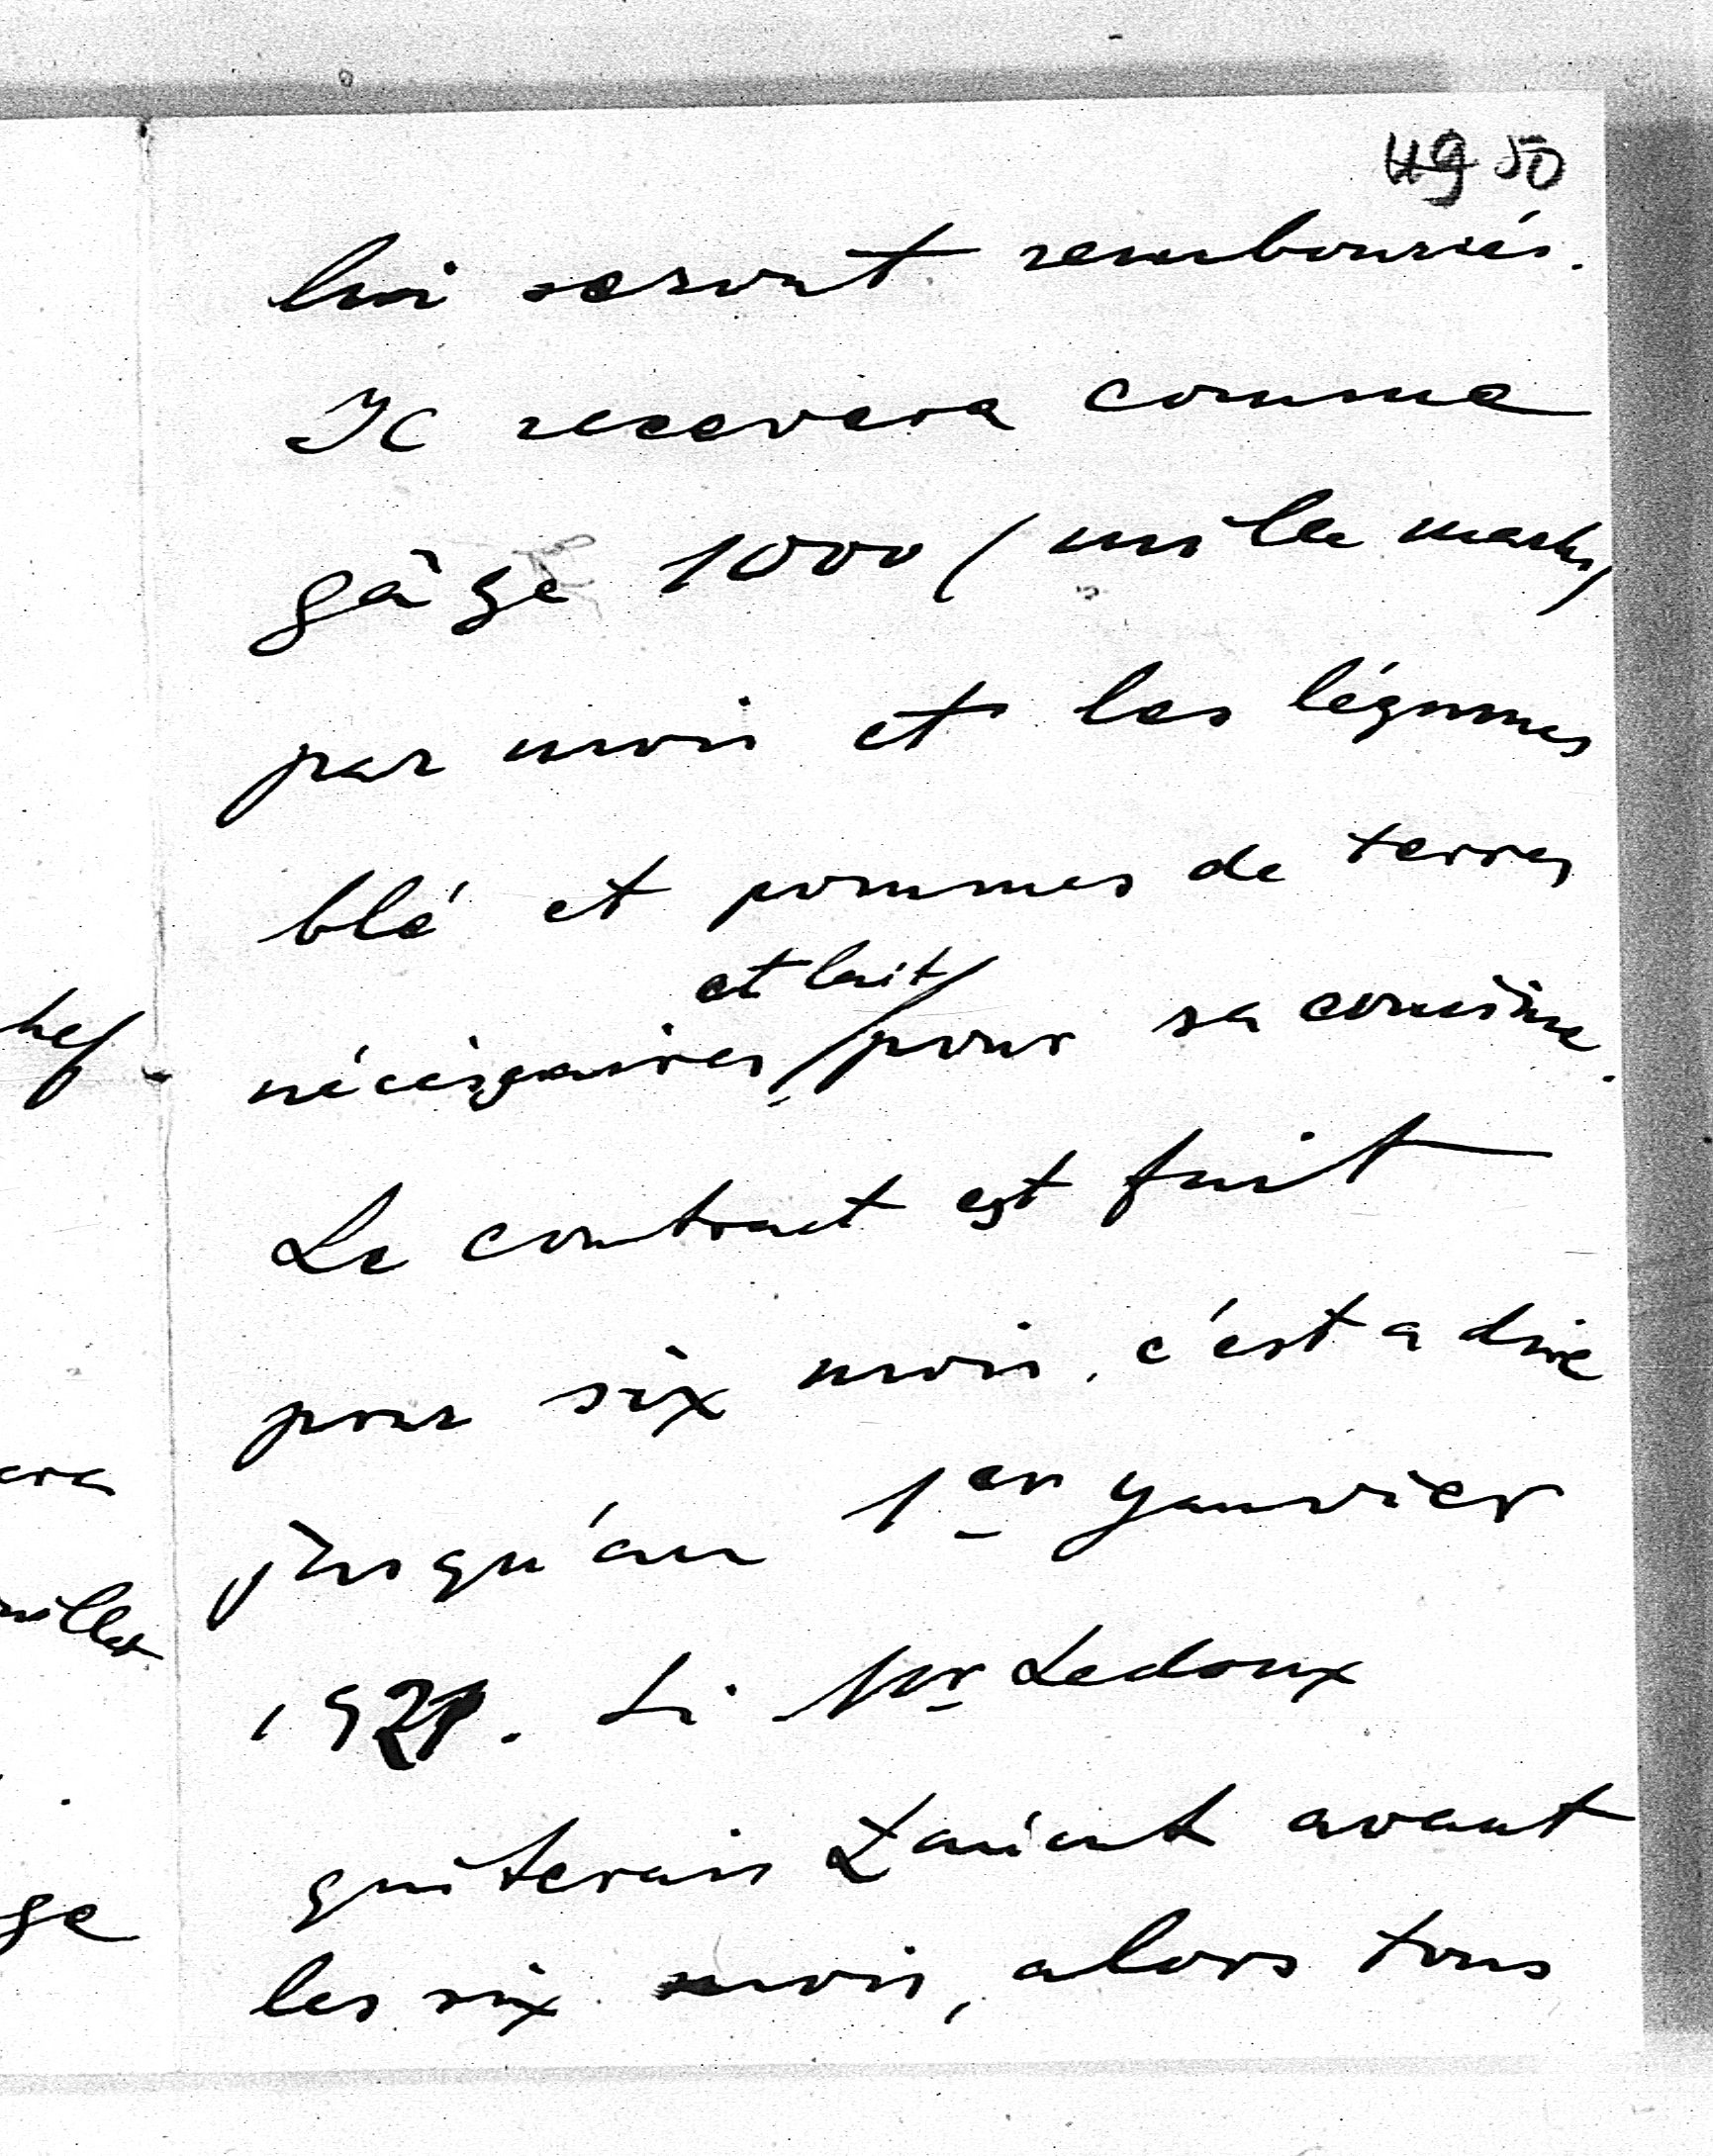 49 50
hef
era
millet
ge
lui seront remboursés.
Il recevera comme
gâge 1000 (mille marks)
par mois et les légumes
blé et pommes de terres
et lait
nécéssaires, pour sa couisine.
Le contract est fait
pour six mois, c'est a dire
jusqu'au 1er Janvier
1921. Si Mr Ledoux
quiterais avant
les six mois, alors tous